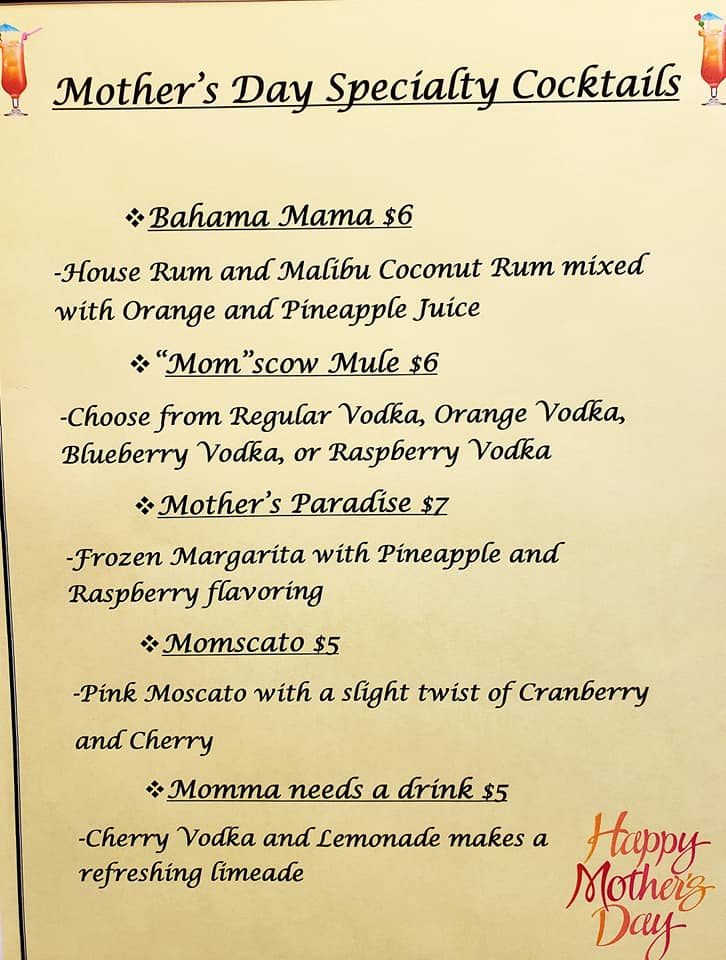 Mother's Day Specialty Cocktails
❖Bahama Mama $6
-House Rum and Malibu Coconut Rum mixed
with Orange and Pineapple Juice
❖"Mom"scow Mule $6
-Choose from Regular Vodka, Orange Vodka,
Blueberry Vodka, or Raspberry Vodka
❖Mother's Paradise $7
-Frozen Margarita with Pineapple and
Raspberry flavoring
❖Momscato $5
-Pink Moscato with a slight twist of Cranberry
and Cherry
❖Momma needs a drink $5
-Cherry Vodka and Lemonade makes a
refreshing limeade
Happy
Mother's
Day